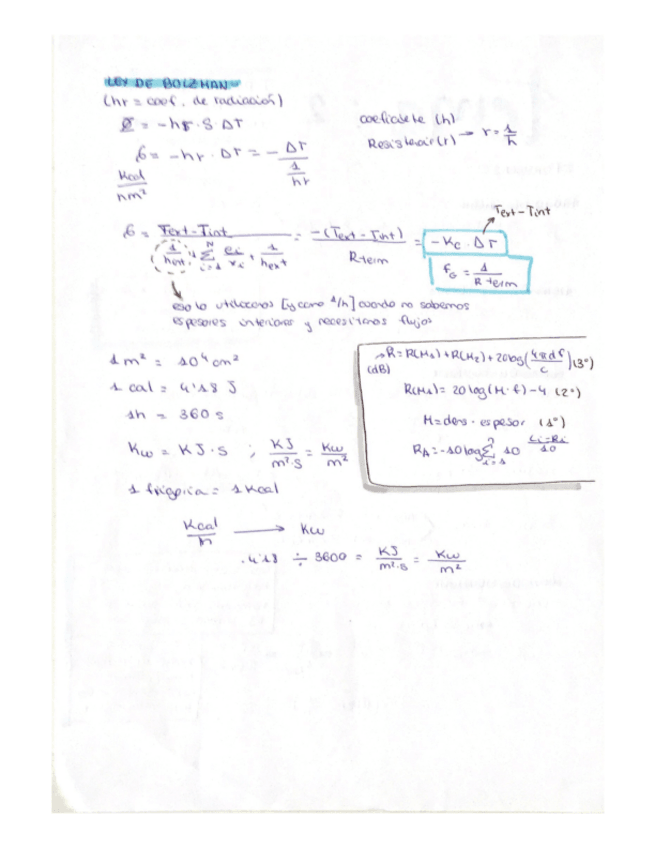 LEY DE BOLZMAN
(hr = coef. de radiación)
Ø = -hr · S · ΔT
coeficiente (h)
Resistencia (r) → r = 1/h
G = -hr · ΔT = - ΔT / (1/hr)
Kcal / hm²
Text - Tint
G = Text - Tint / (1/hint + Σ ei/λi + 1/hext) = -(Text - Tint) / Rterm = -Kc · ΔT
fG = 1 / Rterm
eso lo utilizamos [y como 1/h] cuando no sabemos
espesores interiores y necesitamos flujos
1 m² = 10⁴ cm²
1 cal = 4'18 J
1h = 360 s
Kw = KJ · s ; KJ / m²·s = Kw / m²
1 frigoria = 1 Kcal
Kcal / h → Kw
· 4'18 ÷ 3600 = KJ / m²·s = Kw / m²
→ R = R(M1) + R(M2) + 20log(4πdf / c) (3º)
(dB)
R(M1) = 20log(M·f) - 4 (2º)
M = dens · espesor (1º)
RA = -10log Σ 10^(Li-Ri / 10)